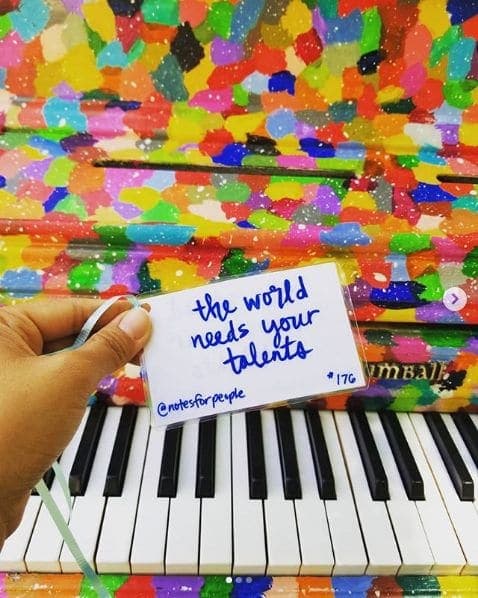 the world
needs your
talents
#176
@notesforpeople